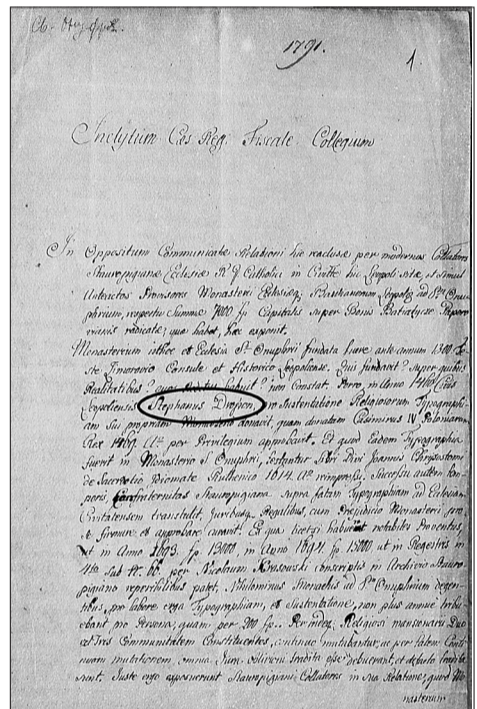 1791.
1
Inclytum Cæs. Reg. Fiscale Collegium
In Oppositum Communicatæ Relationi hic reclusæ per modernos Collatores
Stauropigianæ Ecclesiæ R. G. Catholicæ in Civitte hic Leopoli sitæ, et simul
Provisores Monasterii Ecclesiæq Basilianorum Leopoli ad Stum Onu-
phrium, respectu Summæ 7000 fp Capitalis super Bonis
radicatæ, qua habet, hæc exponit.
Monasterium isthoc et Ecclesia Sti Onuphrii fundata fuere ante annum 1300
ste Zimorovio Consule et Historico Leopoliense. Qui fundavit? super quibus
Realitatibus? quos habuit? non Constat. Porro, in Anno 1460 Civis
Leopoliensis Stephanus Dropan, pro Sustentatione Religiosorum Typographi-
am Sui propriam Monasterio donavit, quam donatam Casimirus IV Poloniarum
Rex 1469. Ao per Privilegium approbavit. Et quod Eadem Typographia
fuerit in Monasterio S. Onuphrii, testantur Libri Divi Joannis Chrysostomi
de Sacerdotio Idiomate Ruthenico 1614. Ao reimpressi. Successu autem tem-
poris, Confraternitas Stauropigiana supra fatam Typographiam ad Ecclesiam
Civitatensem transtulit, Juribusq Regalibus, cum Præjudicio Monasterii pro
se firmare et approbare curavit. Ex qua licet habuit notabiles Proventus,
ut in Anno 1693. fp 13000, in Anno 1694. fp 15000 ut in Regestris in
4to Sub N. 66. per Nicolaum Krasowski conscriptis in Archivio Stauro-
pigiano reperibilibus patet, Nihilominus Monachis ad Stum Onuphrium degen-
tibus, pro labore erga Typographiam, et Sustentatione, non plus annue tribu-
ebant pro Persona, quam per 200 fp. Religiosi mansionarii Duo
aut Tres Communitatem Constituentes, continuo mutabantur, ac per talem Conti-
nuam mutationem omnia Jura oblivioni tradita esse debuerunt, et
sunt. Juste ergo exposuerunt Stauropigiani Collatores in sua Relatione, quod Mo-
nasterium